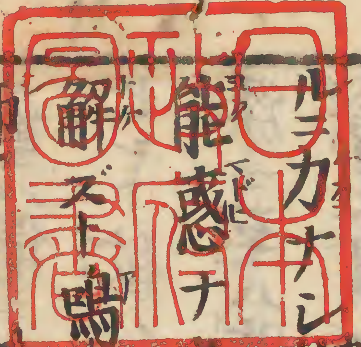 ルニカナシ
能惑ナ
解ズト鳴
日本
政府
圖書